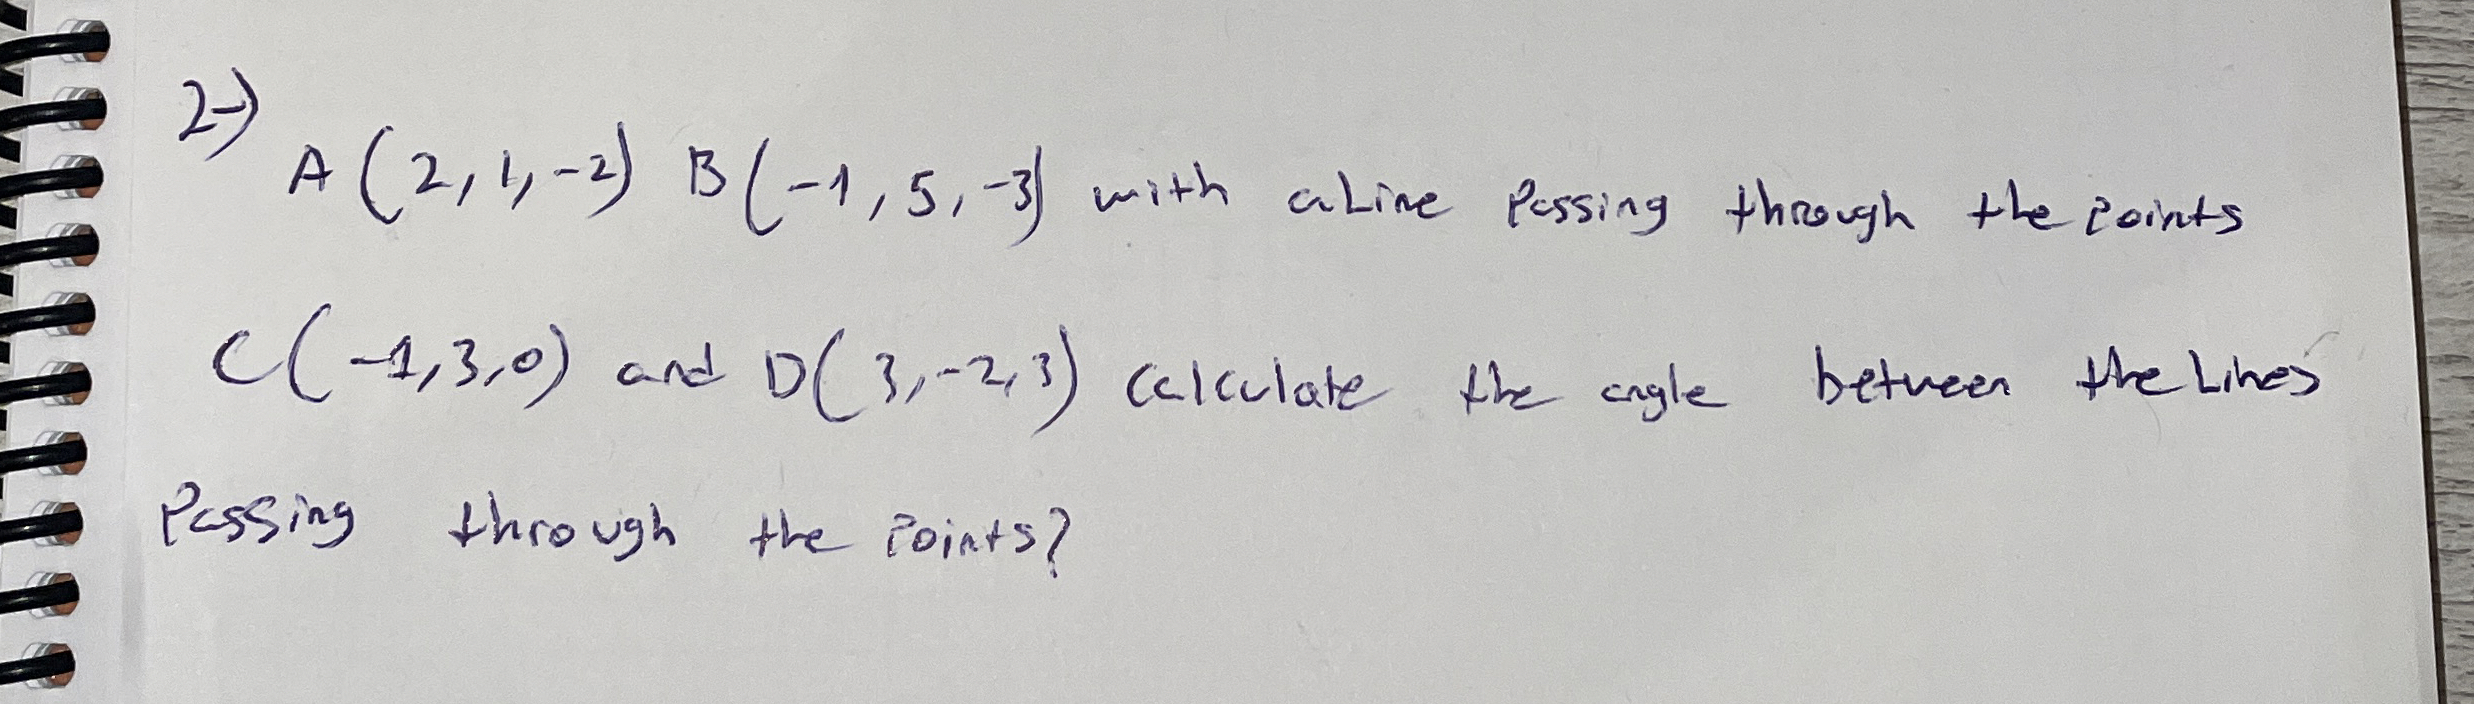 2-)
A(2,1,-2) B(-1,5,-3) with a Line Passing through the points
C(-1,3,0) and D(3,-2,3) calculate the angle between the Lines
Passing through the points?